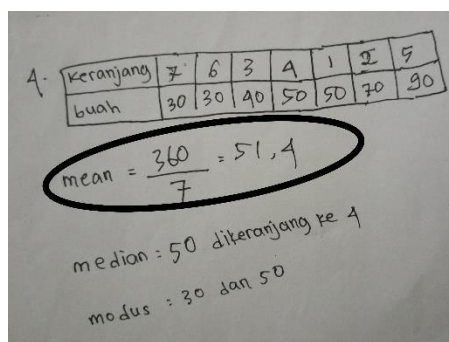 4. Keranjang 7 6 3 4 1 2 5
buah 30 30 40 50 50 70 90
mean = 360/7 = 51,4
median = 50 dikeranjang ke 4
modus : 30 dan 50